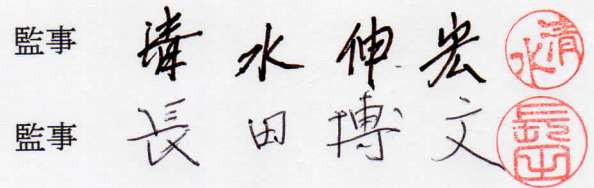 監事 清水伸宏 清水
監事 長田博文 長田